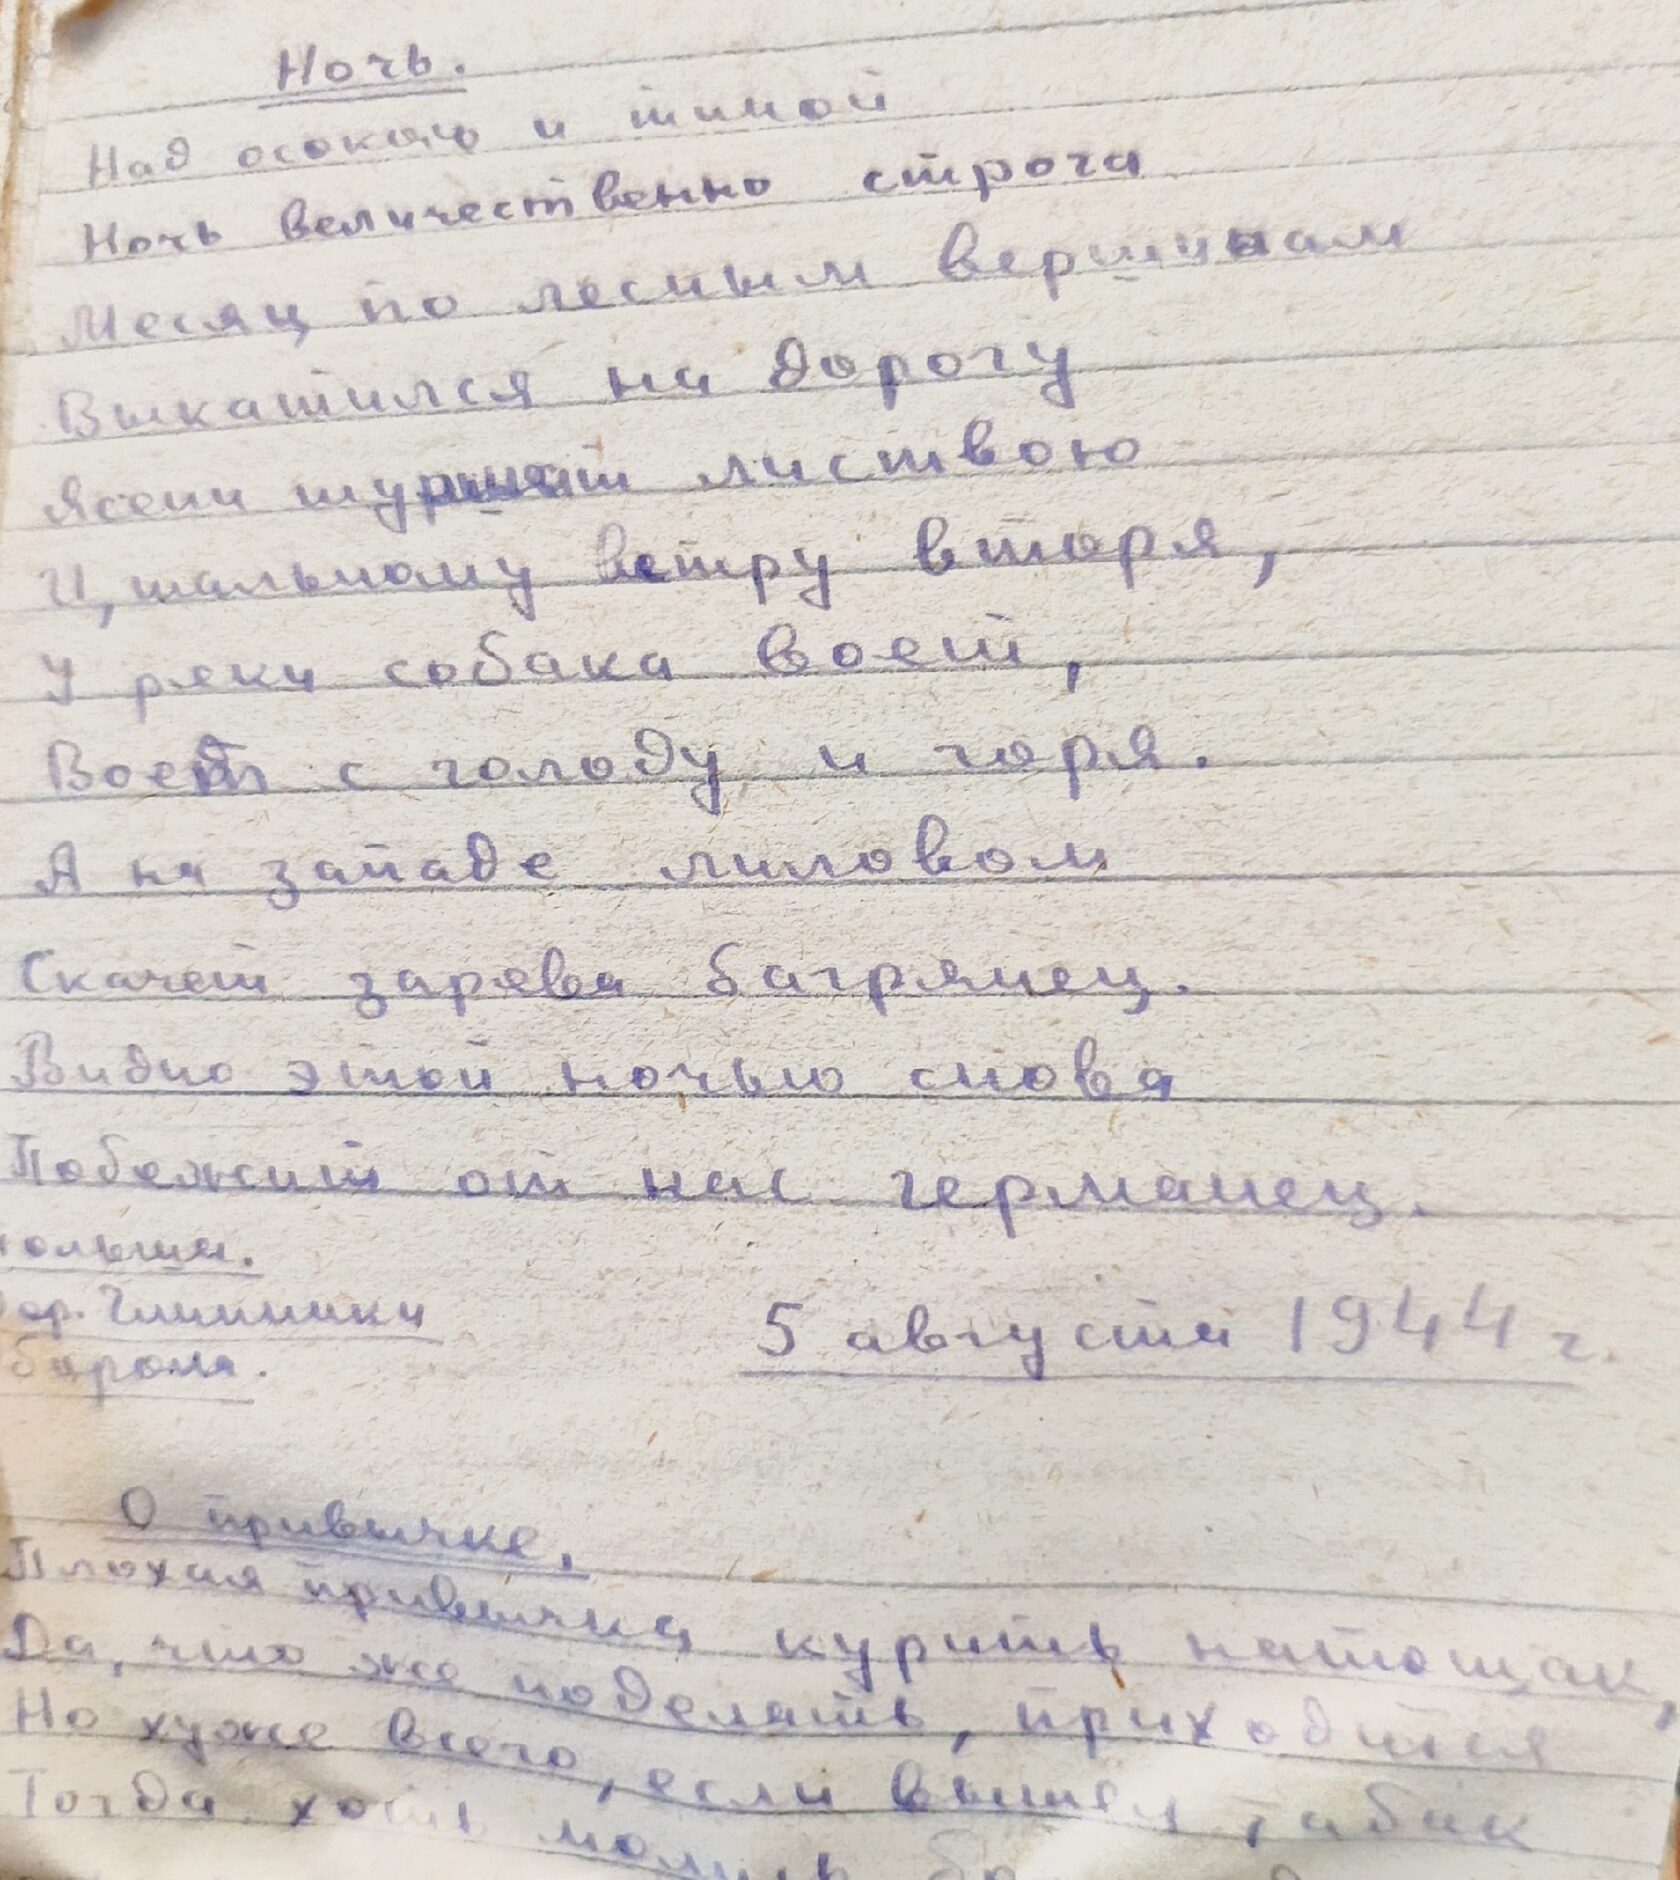 Ночь.
Над осокою и тиной
Ночь величественно строга
Месяц по лесным вершинам
Выкатился на дорогу
Ясени шуршат листвою
И, шальному ветру вторя,
У реки собака воет,
Воет с голоду и горя.
А на западе лиловом
Скачет зарева багрянец.
Видно этой ночью снова
Побежит от нас германец.
ольша.
дер. Глинники
5 августа 1944 г.
О привычке.
Плохая привычка курить натощак,
Да, что же поделать, приходится
Но хуже всего, если вышел табак
Тогда хоть молись